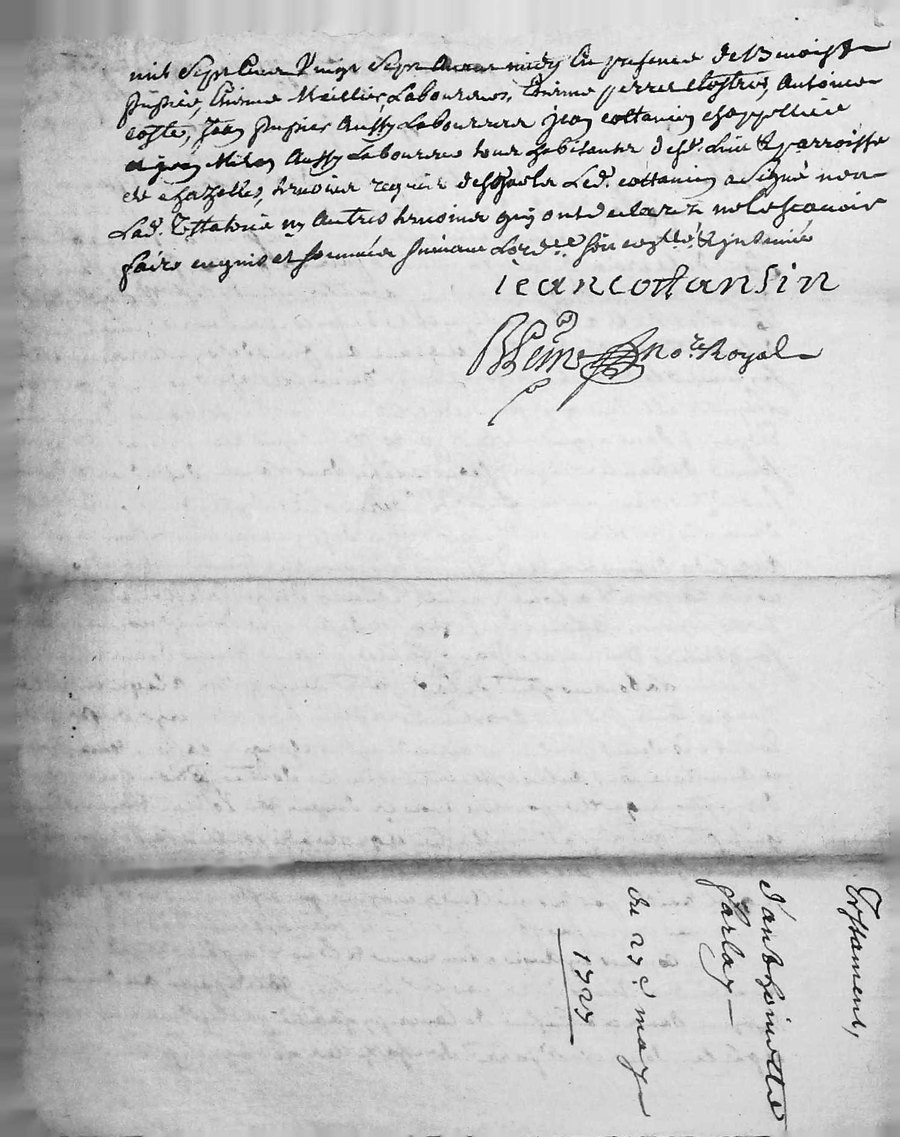 mil sept cent vingt sept avant midy en presence de Benoist
pupier, Estienne Meillier, Laboureurs, Estienne pierre Antoine
coste, Jean pupier aussy Laboureurs jean cottancin chappellier
Aussy Laboureur tous habitants de parroisse
de chazelles, tesmoins requis desquels Led. cottancin a signé non
Lad. Testatrice ny autres tesmoins quy ont declaré ne le scavoir
faire enquis et sommés suivant Lord.ce
jeancottansin
No.re Royal
Testament,
D'anthoinette
farlay
du 27e. may
1727